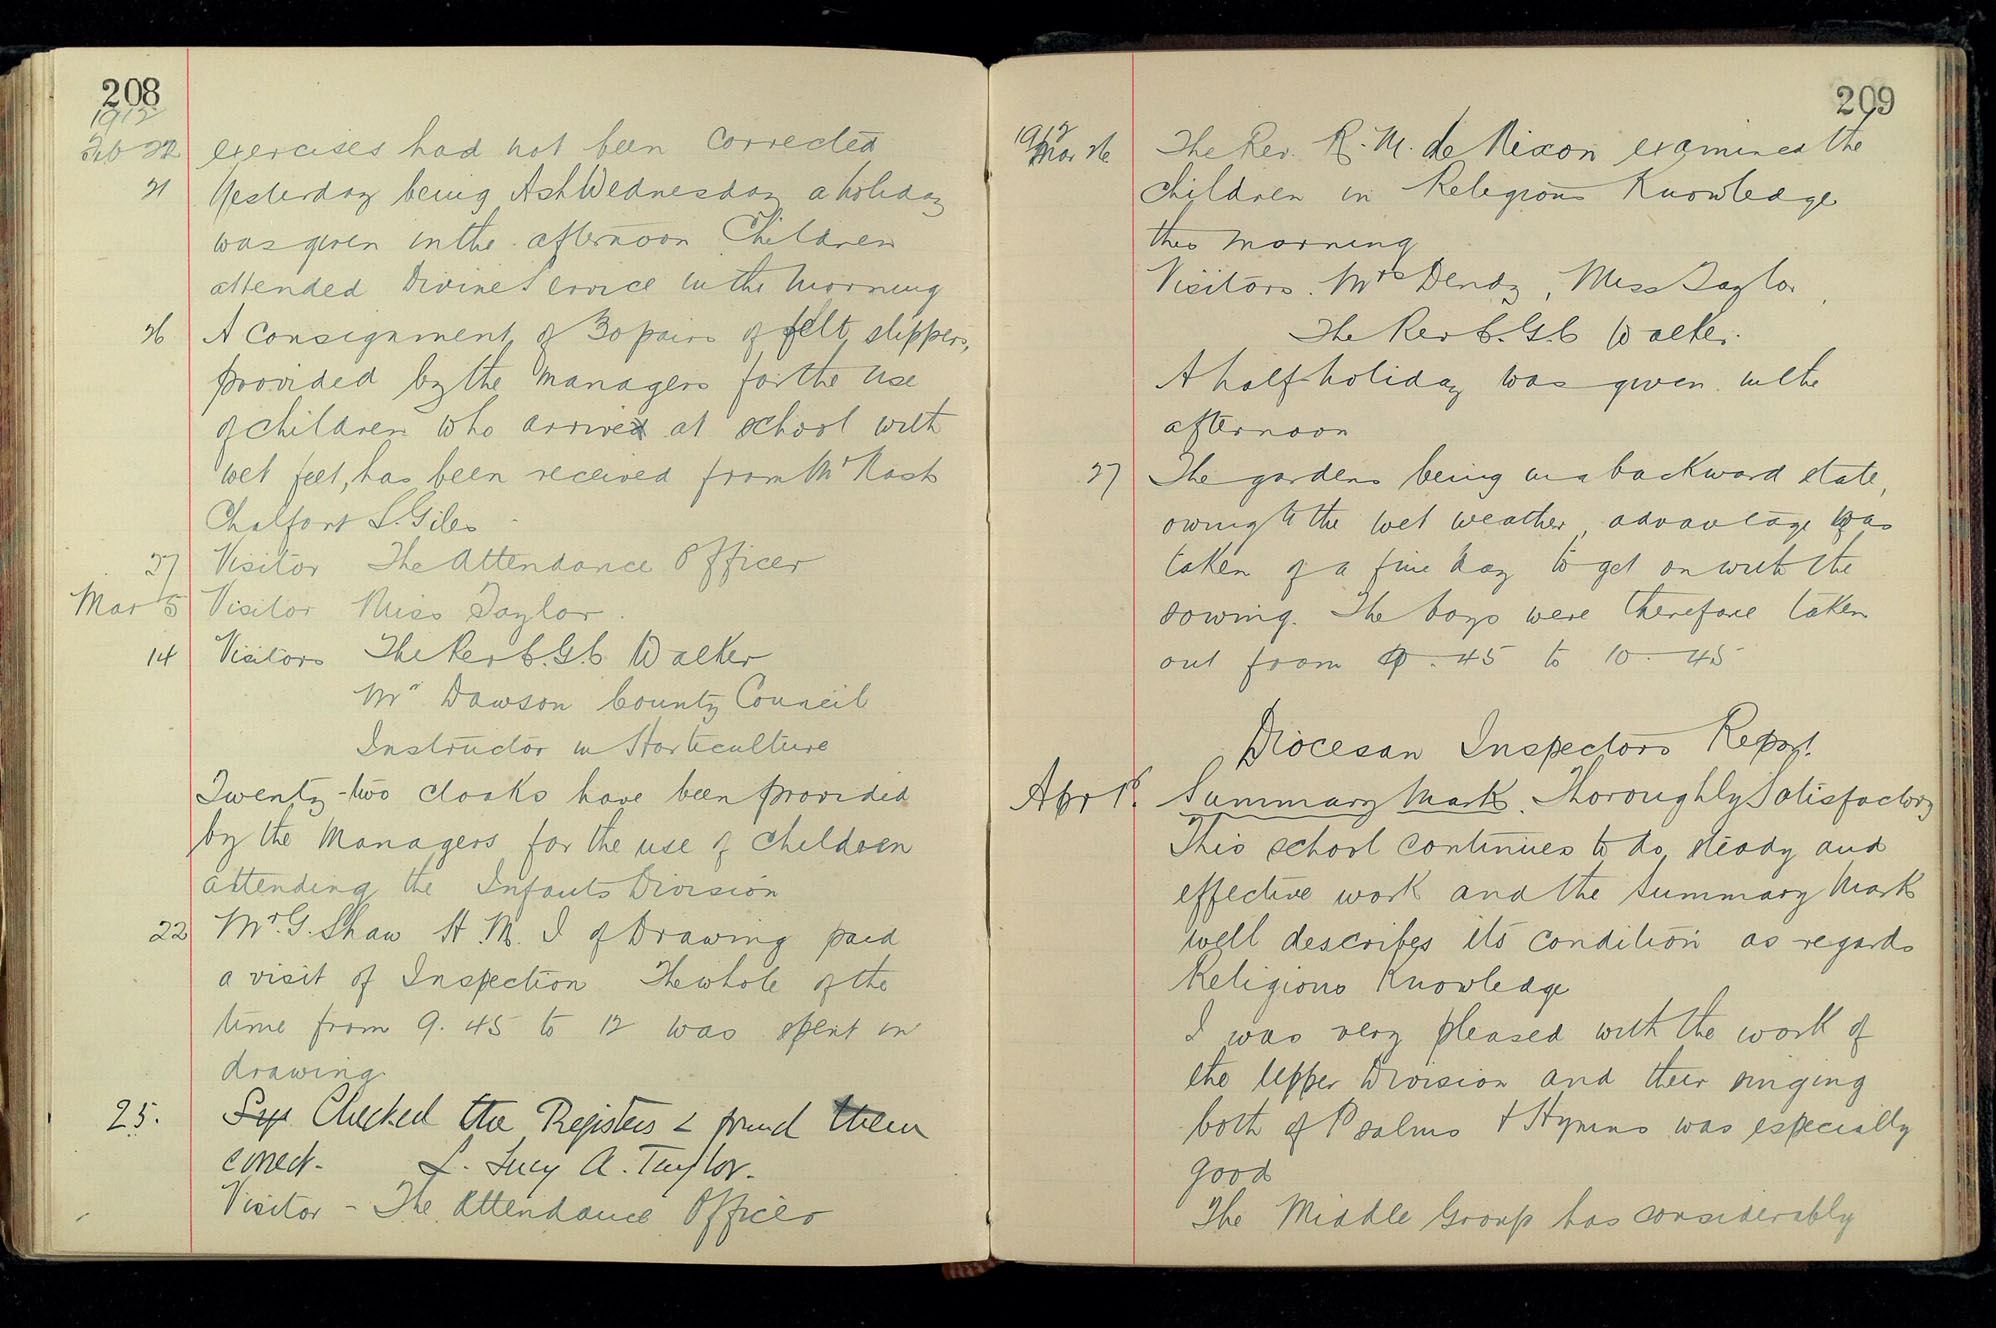 208
1912
Feb 22 exercises had not been corrected
21 Yesterday being Ash Wednesday a holiday
was given in the afternoon Children
attended Divine Service in the Morning
26 A consignment of 30 pairs of felt slippers,
provided by the Managers for the use
of children who arrived at school with
wet feet, has been received from Mr
Chalfont S. Giles
27 Visitor The Attendance Officer
Mar 5 Visitor Miss Taylor.
14 Visitors The Rev C.G.C Walker
Mr Dawson County Council
Instructor in Horticulture
Twenty-two cloaks have been provided
by the Managers for the use of children
attending the Infants Division
22 Mr. G. Shaw H.M.I of Drawing paid
a visit of Inspection The whole of the
time from 9.45 to 12 was spent in
drawing.
25. Checked the Registers & found them
correct- L. Lucy A. Taylor.
Visitor - The Attendance Officer
209
1912
Mar 26 The Rev. R.M. de Nixon examined the
Children in Religious Knowledge
this morning
Visitors. Mrs Dendy, Miss Taylor,
The Rev C.G.C Walker.
A half-holiday was given in the
afternoon
27 The gardens being in a backward state,
owing to the wet weather, advantage was
taken of a fine day to get on with the
sowing. The boys were therefore taken
out from 9.45 to 10.45
Diocesan Inspectors Report.
Apr 1st. Summary Mark. Thoroughly Satisfactory
This school continues to do steady and
effective work and the Summary Mark
well describes its condition as regards
Religious Knowledge
I was very pleased with the work of
the Upper Division and their singing
both of Psalms & Hymns was especially
good
The Middle Group has considerably